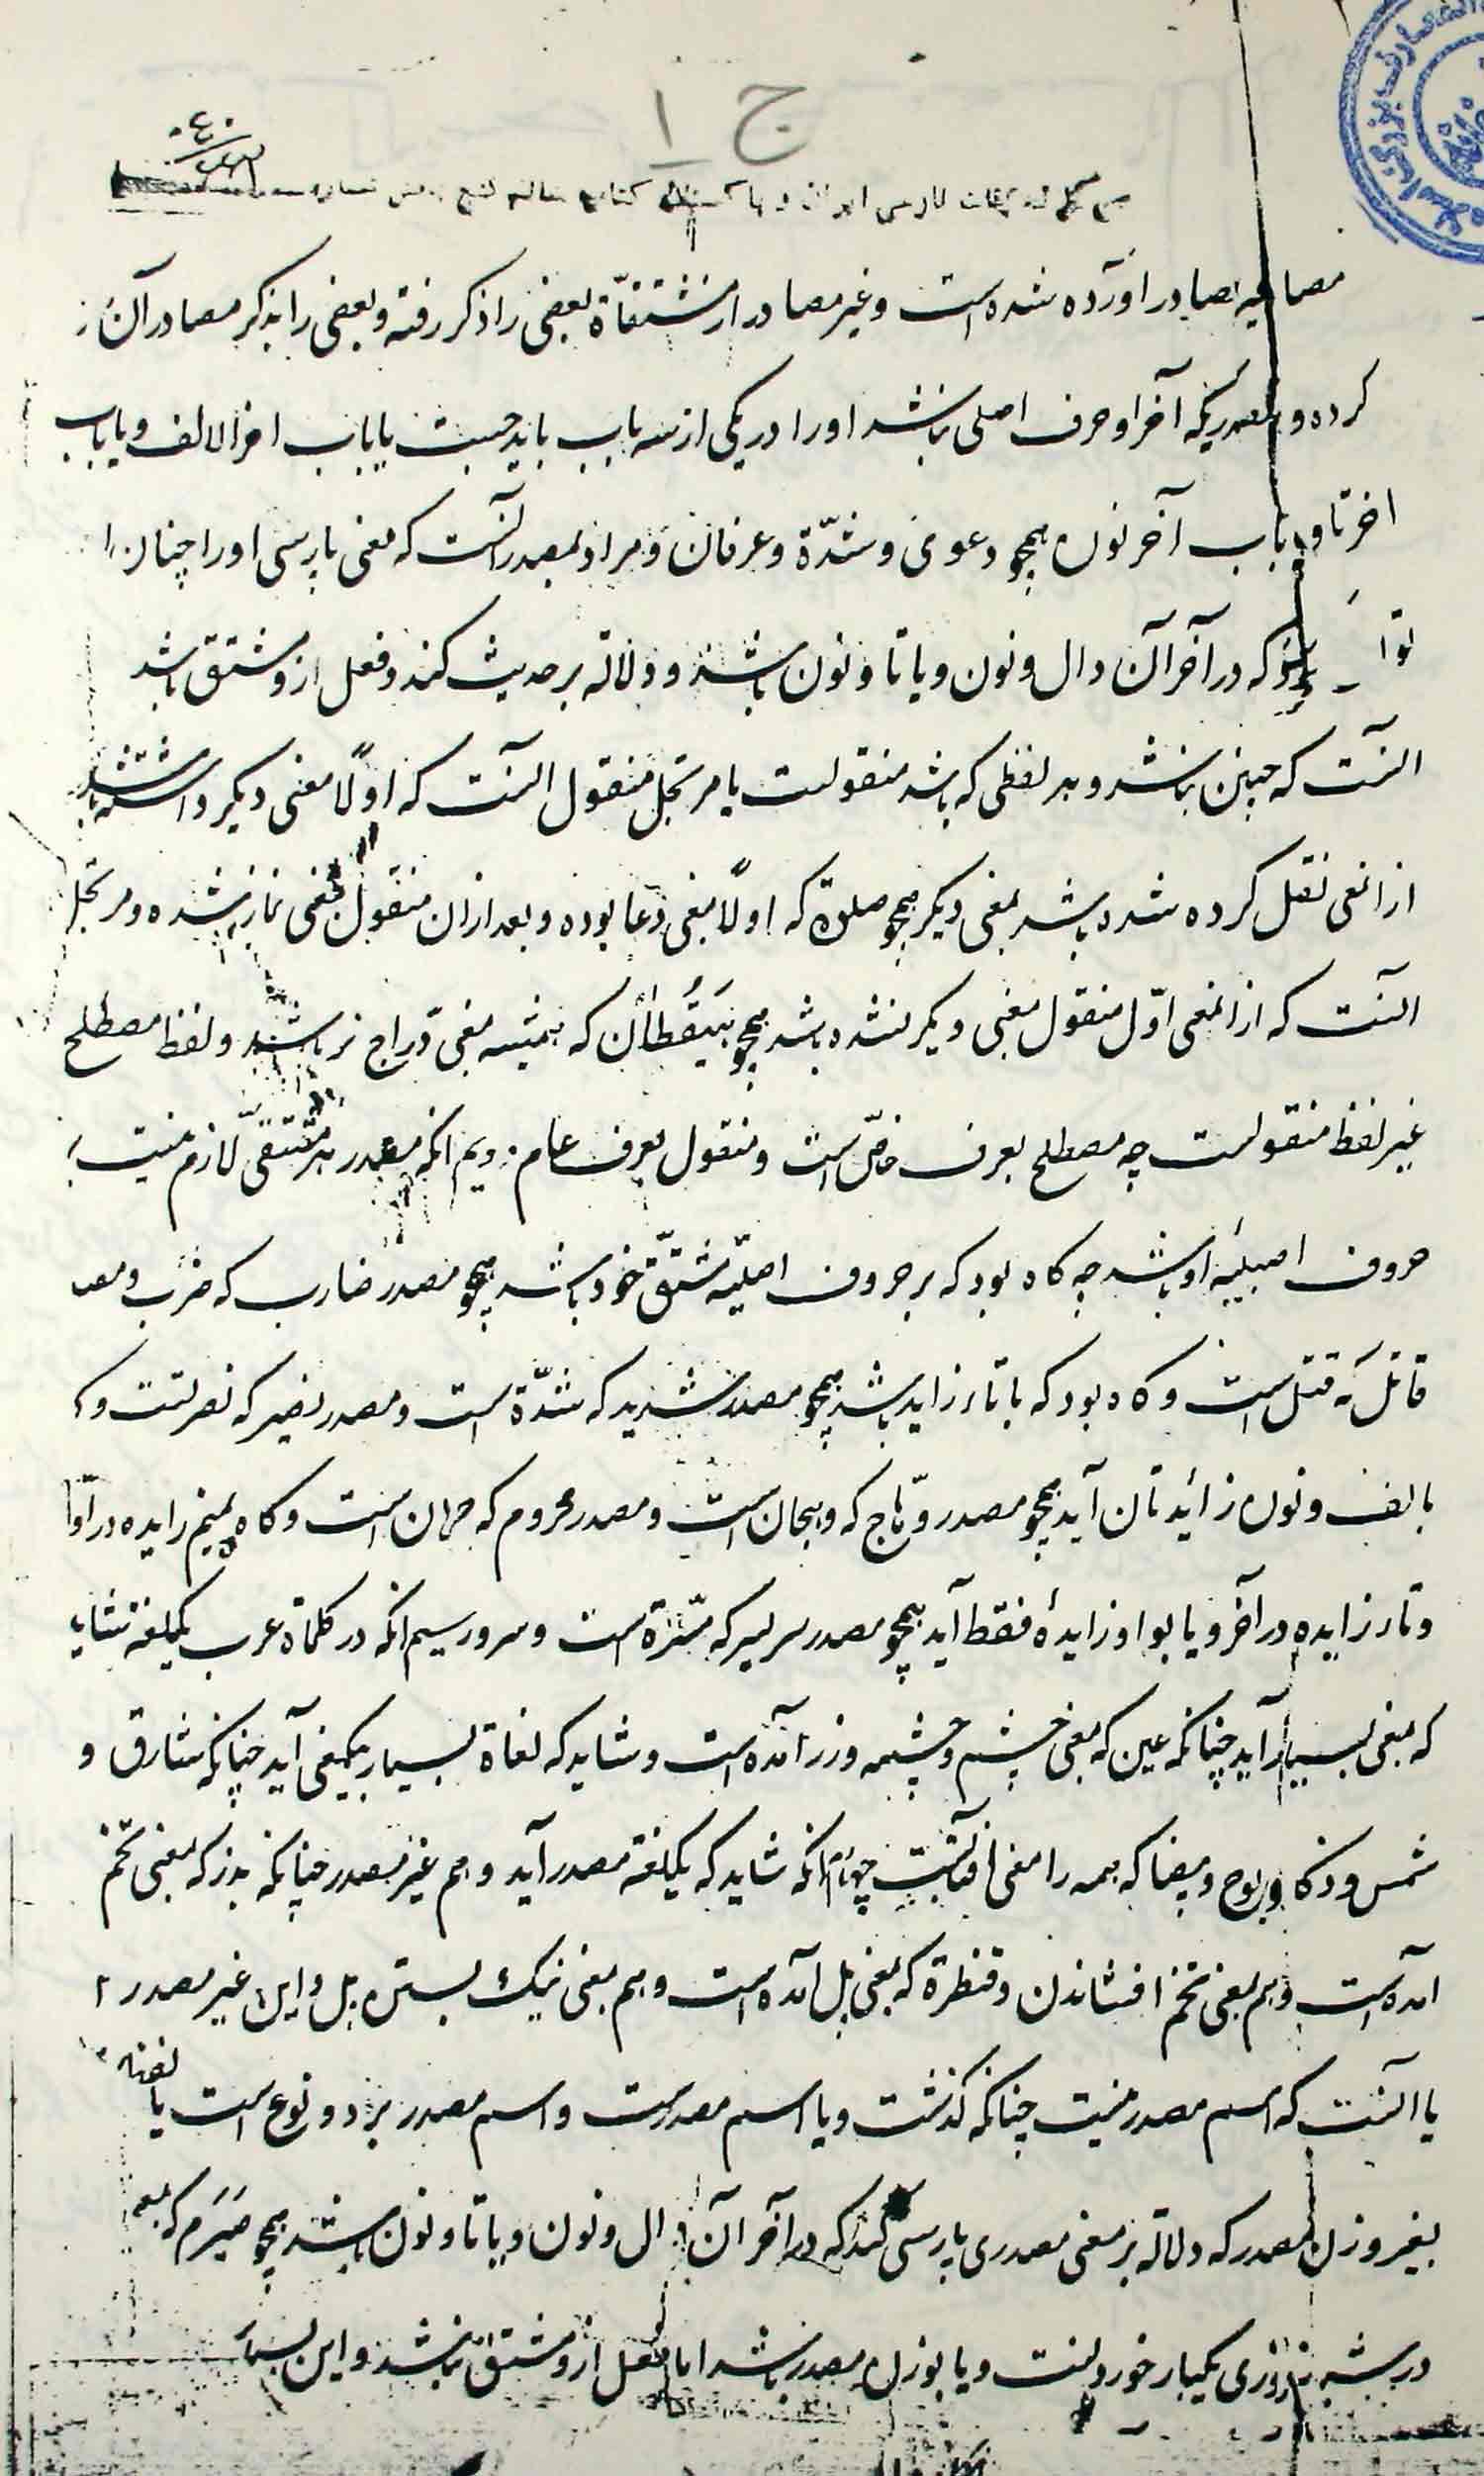 ج ۱
مصادر آورده شده است و غیر مصادر از مشتقاة بعضی را ذکر رفته و بعضی را بذکر مصادر آن
کرده و مصدریکه آخر او حرف اصلی نباشد او را در یکی از سه باب باید جست یا باب اخر الالف و یا باب
اخر تا و یا باب آخر نون همچو دعوی و شدّة و عرفان و مراد بمصدر آنست که معنی پارسی او را چنان
که در آخر آن دال و نون و یا تا و نون باشد و دلالة بر حدیث کند و فعل از و مشتق باشد
آنست که چنین نباشد و هر لفظی که باشد منقولست یا مرتجل منقول آنست که اولاً معنی دیگر داشته باشد
از انمعنی نقل کرده شده باشد بمعنی دیگر همچو صلوة که اولاً بمعنی دعا بوده و بعد ازان منقول بمعنی نماز شده و مرتجل
آنست که از انمعنی اوّل منقول بمعنی دیگر نشده باشد همچو که همیشه بمعنی درّاج نر باشد و لفظ مصطلح
غیر لفظ منقولست چه مصطلح بعرف خاصّ است و منقول بعرف عام دویم انکه مصدر هر مشتقی لازم نیست
حروف اصلیّه او باشد چه کاه بود که بر حروف اصلیّه مشتقّ خود باشد همچو مصدر ضارب که ضرب و مصد
قاتل که قتل است و کاه بود که با تاء زاید باشد همچو مصدر شدید که شدّة است و مصدر نصیر که نصرتست و
بالف و نون زائدتان آید همچو مصدر وهّاج که وهجان است و مصدر محروم که حرمان است و کاه بمیم زایده در اوّل
و تاء زایده در آخر و یا بواو زایدهٔ فقط آید همچو مصدر سریر که مسّرة است و سرور سیم انکه در کلماة عرب یکلغة شاید
که بمعنی بسیار آید چنانکه عین که بمعنی چشم و چشمه و زر آمده است و شاید که لغاة بسیار بیکمعنی آید چنانکه شارق و
شمس و ذکا و یوح و بیضا که همه را معنی افتابست چهارم انکه شاید که یکلغة مصدر آید و هم غیر مصدر چنانکه بذر که بمعنی تخم
آمده است و هم بمعنی تخم افشاندن و قنطرة که بمعنی پل آمده است و هم بمعنی نیک بستن پل و این غیر مصدر
یا آنست که اسم مصدر نیست چنانکه کذشت و یا اسم مصدرست و اسم مصدر بر دو نوع است یا
بغیر وزن مصدر که دلالة بر معنی مصدری پارسی کند که در آخر آن دال و نون و یا تا و نون باشد همچو که بمعنی
در شبه روزی یکبار خوردنست و یا بوزن مصدر باشد اما فعل از و مشتق نباشد و این بسیار